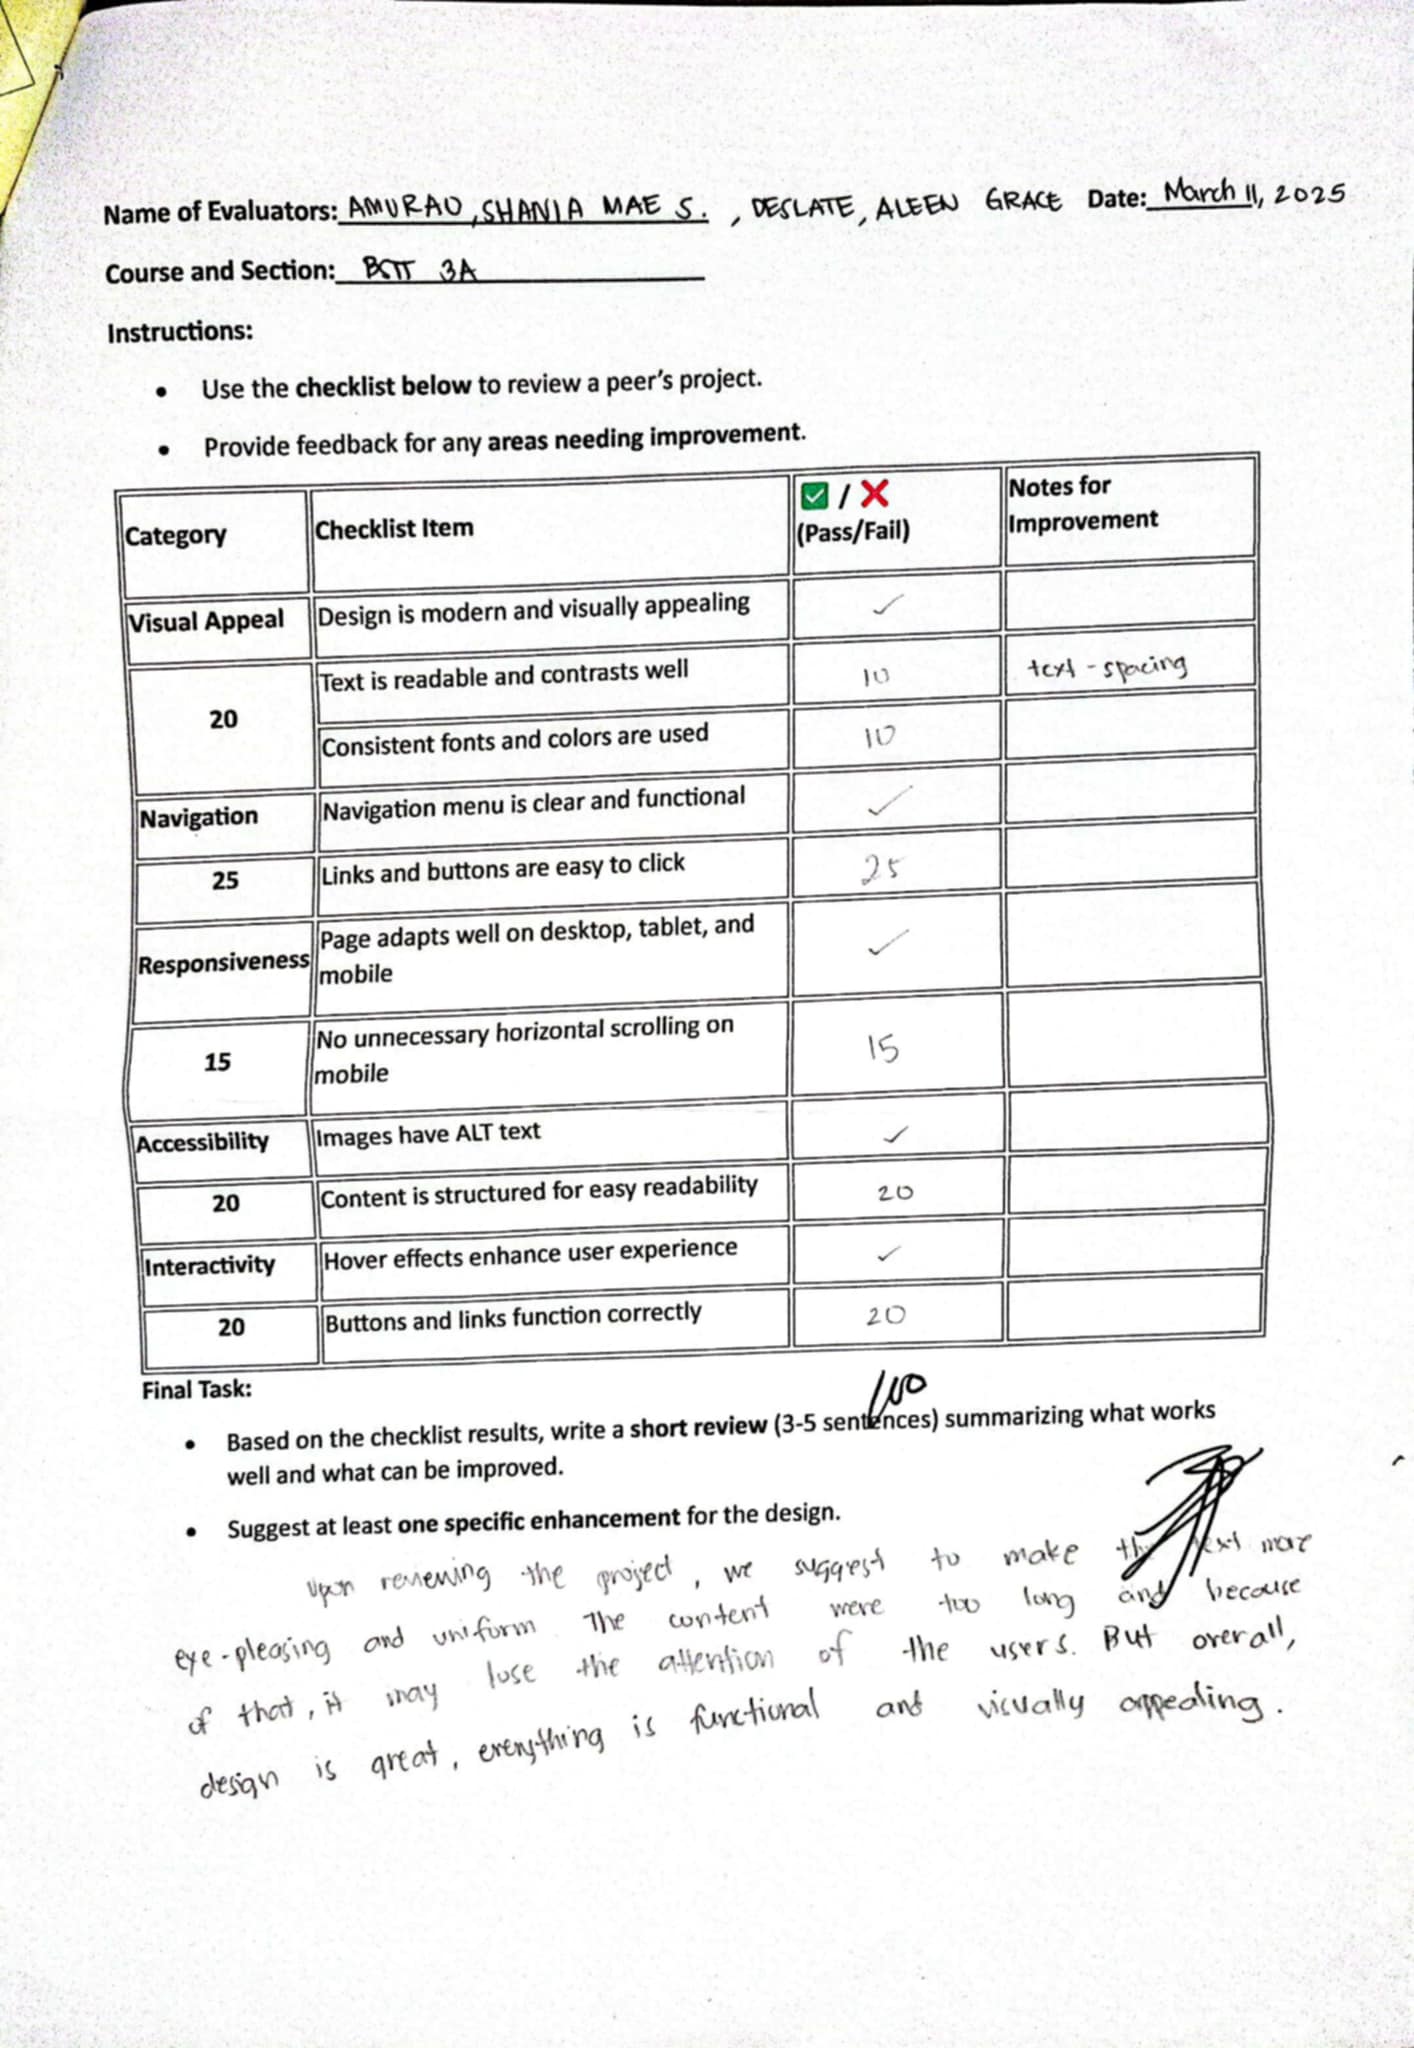 Name of Evaluators: AMURAO, SHANIA MAE S. , DESLATE, ALEEN GRACE Date: March 11, 2025
Course and Section: BSIT 3A
Instructions:
• Use the checklist below to review a peer's project.
• Provide feedback for any areas needing improvement.
Category Checklist Item ✅ / ❌ (Pass/Fail) Notes for Improvement
Visual Appeal Design is modern and visually appealing ✓
20 Text is readable and contrasts well 10 text - spacing
Consistent fonts and colors are used 10
Navigation Navigation menu is clear and functional ✓
25 Links and buttons are easy to click 25
Responsiveness Page adapts well on desktop, tablet, and mobile ✓
15 No unnecessary horizontal scrolling on mobile 15
Accessibility Images have ALT text ✓
20 Content is structured for easy readability 20
Interactivity Hover effects enhance user experience ✓
20 Buttons and links function correctly 20
Final Task: 100
• Based on the checklist results, write a short review (3-5 sentences) summarizing what works
well and what can be improved.
• Suggest at least one specific enhancement for the design.
Upon reviewing the project, we suggest to make the text more
eye-pleasing and uniform. The content were too long and because
of that, it may lose the attention of the users. But overall,
design is great, everything is functional and visually appealing.